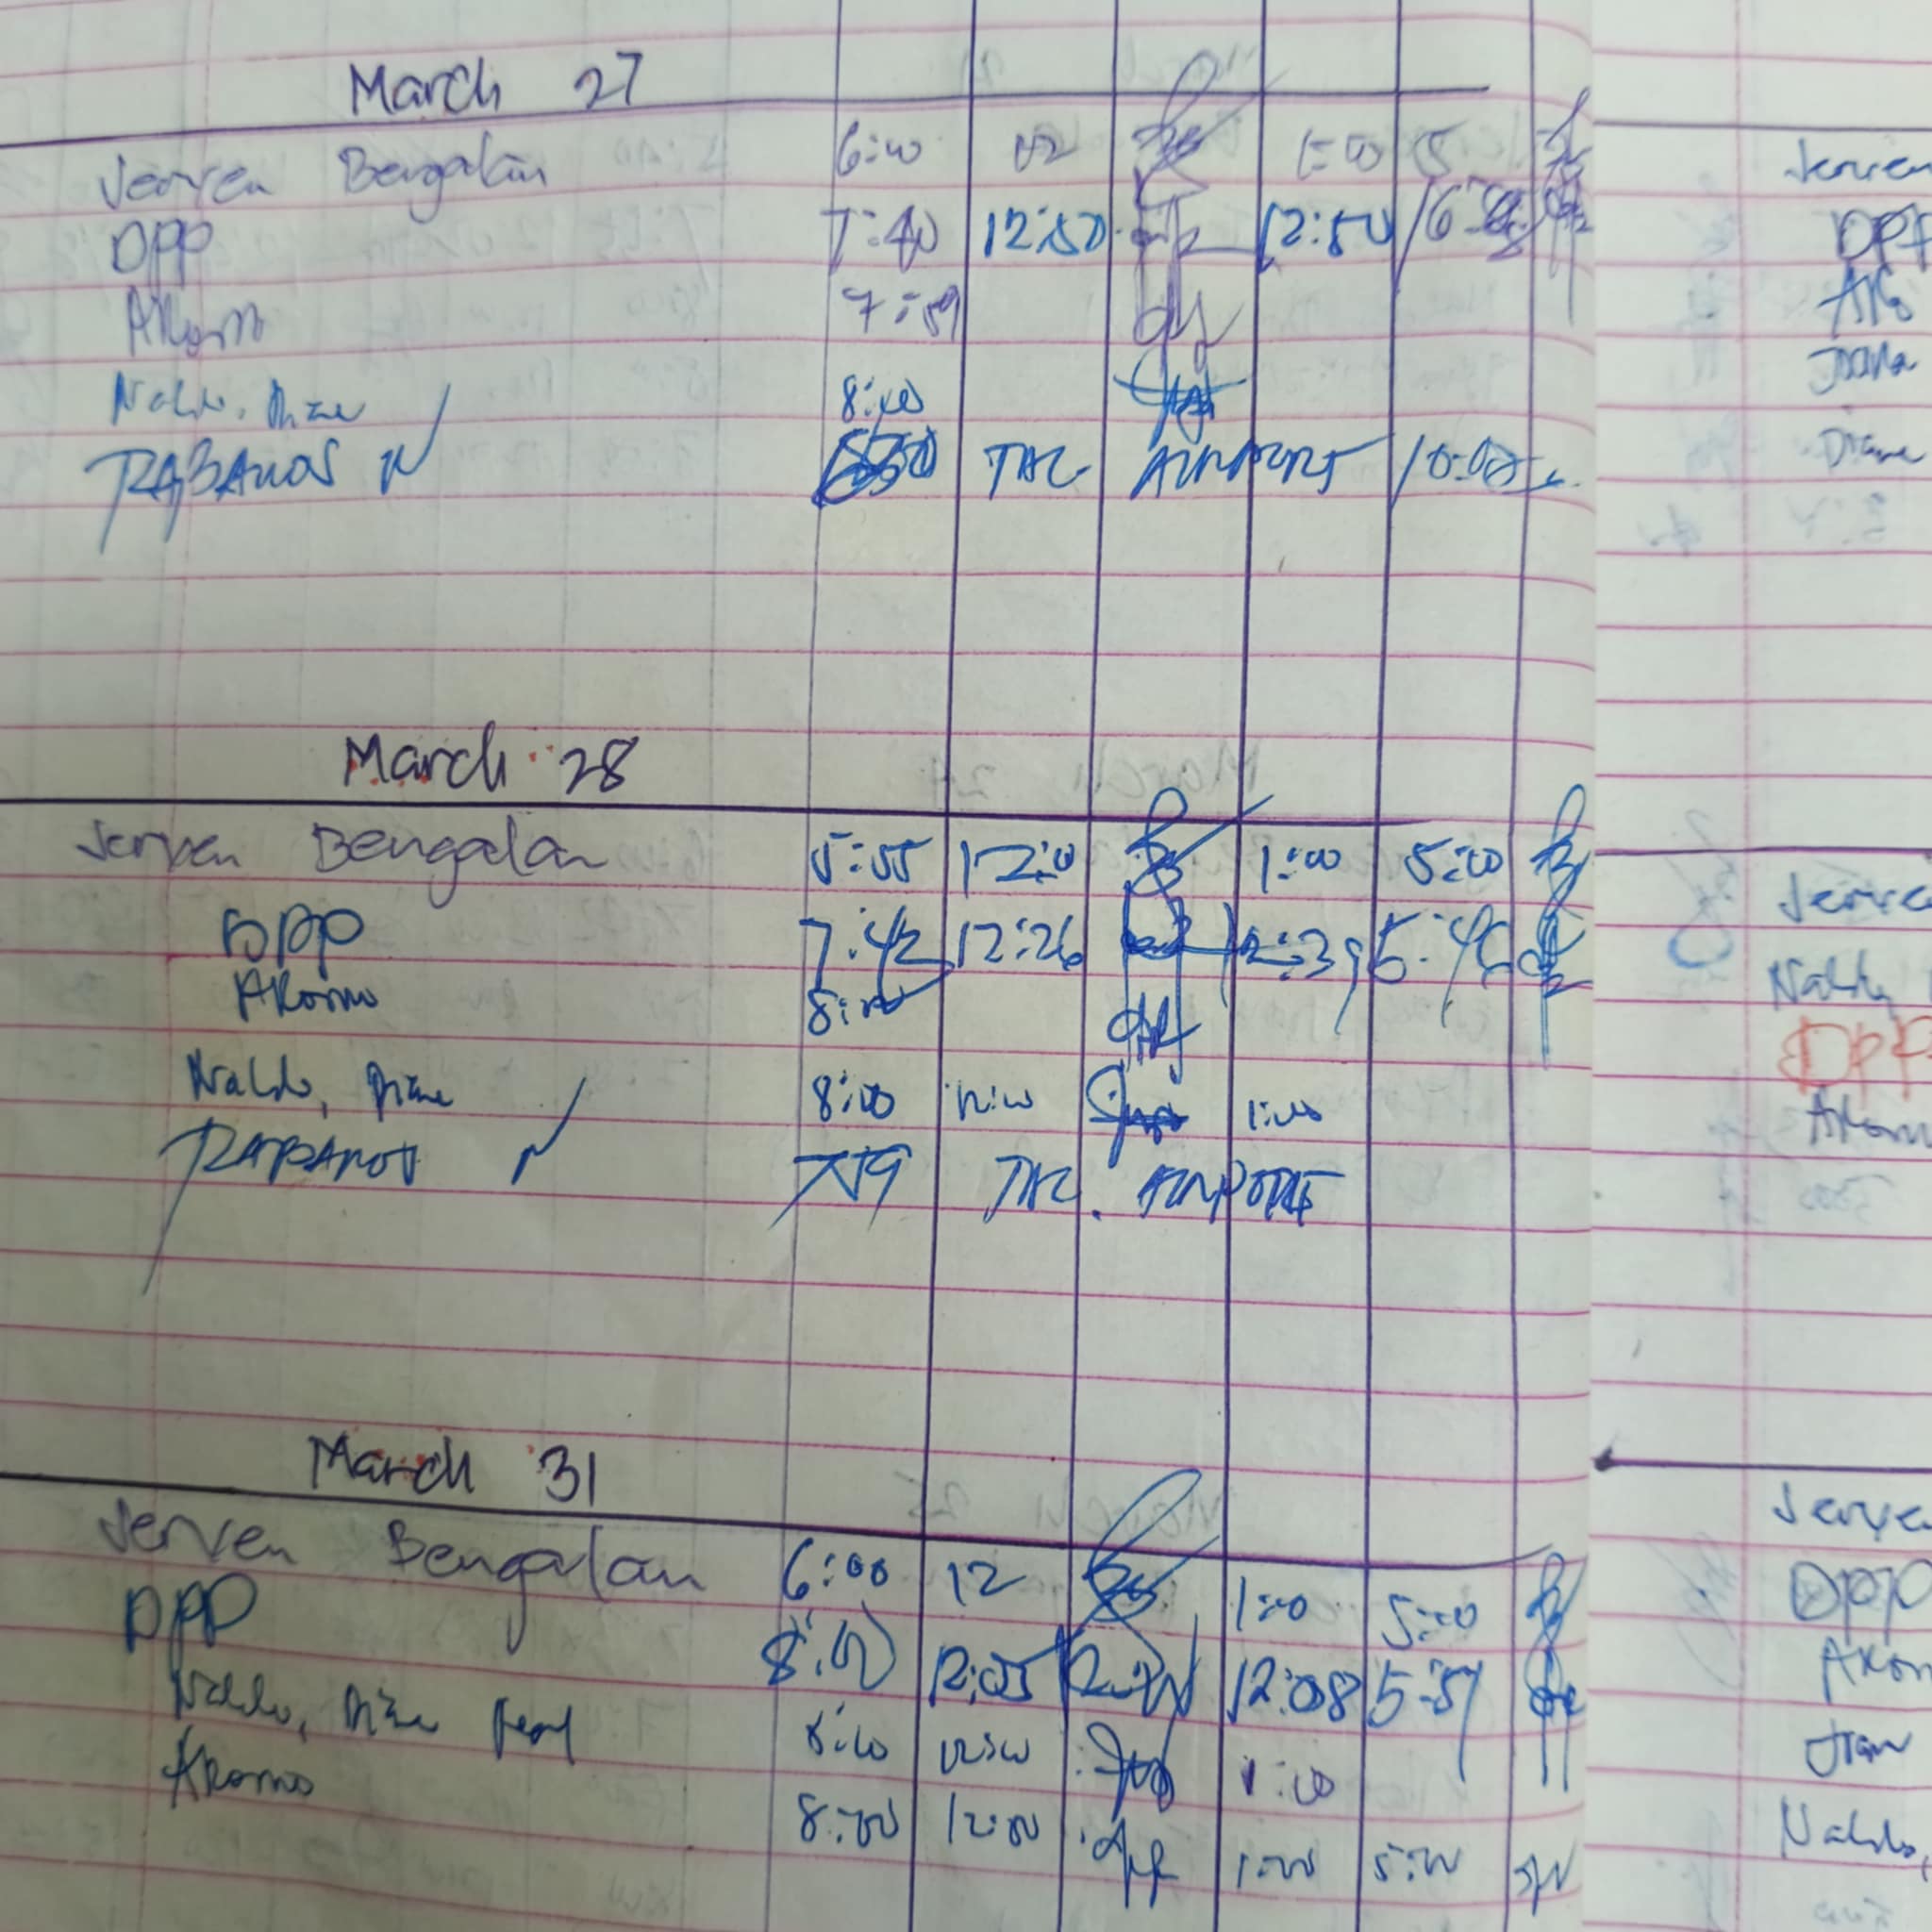 March 27
Jerven Bengalan 6:00 12 1:00 5
DPP 7:40 12:50 12:50
Akomo 7:59
Naldo, Diane 8:00
RABANOS N TAC AIRPORT 10:00
March 28
Jerven Bengalan 5:55 12:0 1:00 5:00
DPP 7:42 12:26 12:39 5:46
Akomo 8:00
Naldo, Diane 8:00 12:00 1:00
RABANOS N 759 TAC. AIRPORT
March 31
Jerven Bengalan 6:00 12 1:00 5:00
DPP 8:00 12:05 12:08 5:57
Naldo, Diane 8:00 12:00 1:00
Akomo 8:00 12:00 1:00 5:00
Jerven
DPP
Ako
Diane
Jerve
Naldo
DPP
Akom
Jerve
DPP
Akom
Naldo,